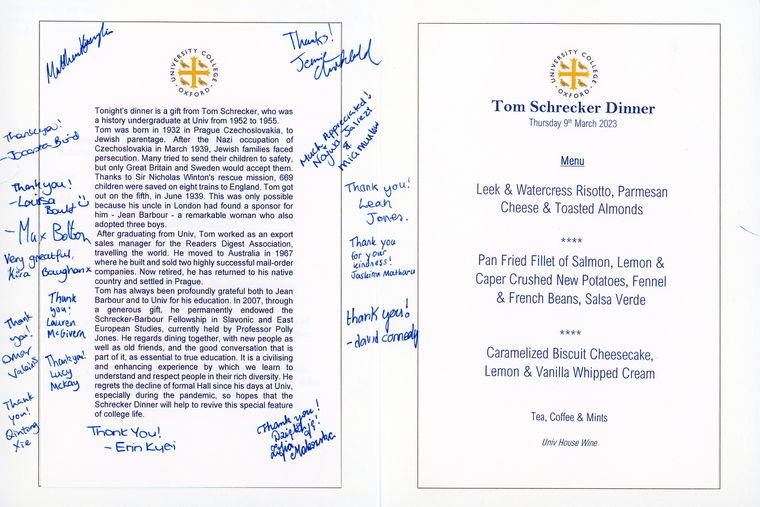 Thanks!
UNIVERSITY COLLEGE
OXFORD
Tonight's dinner is a gift from Tom Schrecker, who was
a history undergraduate at Univ from 1952 to 1955.
Tom was born in 1932 in Prague Czechoslovakia, to
Jewish parentage. After the Nazi occupation of
Czechoslovakia in March 1939, Jewish families faced
persecution. Many tried to send their children to safety,
but only Great Britain and Sweden would accept them.
Thanks to Sir Nicholas Winton's rescue mission, 669
children were saved on eight trains to England. Tom got
out on the fifth, in June 1939. This was only possible
because his uncle in London had found a sponsor for
him - Jean Barbour - a remarkable woman who also
adopted three boys.
After graduating from Univ, Tom worked as an export
sales manager for the Readers Digest Association,
travelling the world. He moved to Australia in 1967
where he built and sold two highly successful mail-order
companies. Now retired, he has returned to his native
country and settled in Prague.
Tom has always been profoundly grateful both to Jean
Barbour and to Univ for his education. In 2007, through
a generous gift, he permanently endowed the
Schrecker-Barbour Fellowship in Slavonic and East
European Studies, currently held by Professor Polly
Jones. He regards dining together, with new people as
well as old friends, and the good conversation that is
part of it, as essential to true education. It is a civilising
and enhancing experience by which we learn to
understand and respect people in their rich diversity. He
regrets the decline of formal Hall since his days at Univ,
especially during the pandemic, so hopes that the
Schrecker Dinner will help to revive this special feature
of college life.
Thank you!
Thank you!
- Louisa
Bould
- Max Bolton
Very greatful,
Kira Baughan x
Thank
you!
Omar
Thank
you!
Lauren
McGivern
Thank you!
Lucy
McKay
Thank
you!
Qintong
Xie
Thank You!
- Erin Kyei
Thank you!
Much Appreciated!
Thank you!
Leah
Jones.
Thank you
for your
kindness!
Jaskiran Matharu
thank you!
- david connedy
UNIVERSITY COLLEGE
OXFORD
Tom Schrecker Dinner
Thursday 9th March 2023
Menu
Leek & Watercress Risotto, Parmesan
Cheese & Toasted Almonds
****
Pan Fried Fillet of Salmon, Lemon &
Caper Crushed New Potatoes, Fennel
& French Beans, Salsa Verde
****
Caramelized Biscuit Cheesecake,
Lemon & Vanilla Whipped Cream
Tea, Coffee & Mints
Univ House Wine